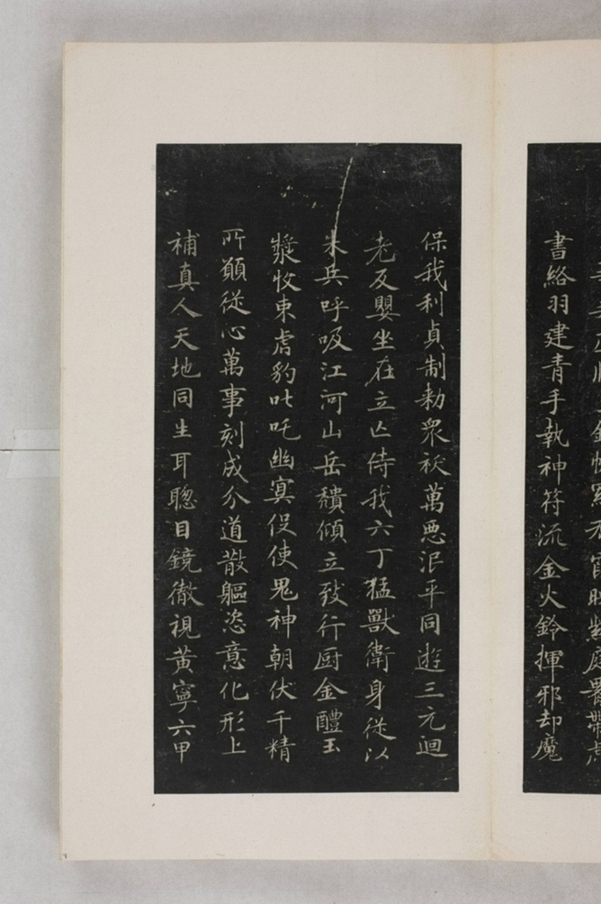 書絡羽建青手執神符流金火鈴揮邪却魔
保我利貞制勑衆祅萬惡泯平同遊三元迴
老反嬰坐在立亡侍我六丁猛獸衛身從以
朱兵呼吸江河山岳穨傾立致行厨金醴玉
漿收束虎豹叱吒幽冥役使鬼神朝伏千精
所願從心萬事刻成分道散軀恣意化形上
補真人天地同生耳聰目鏡徹視黃寧六甲